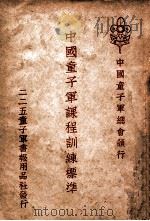 中國童子軍總會頒行
中國童子軍課程訓練標準
二二五童子軍書報用品社發行